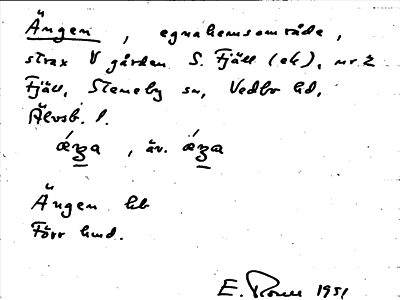 Ängen, egnahemsområde,
strax V gården S. Fjäll (ek), nr 2
Fjäll, Steneby sn, Vedbo hd,
Älvsb. l.
, äv.
Ängen hb
Förr hmd.
E. 1951